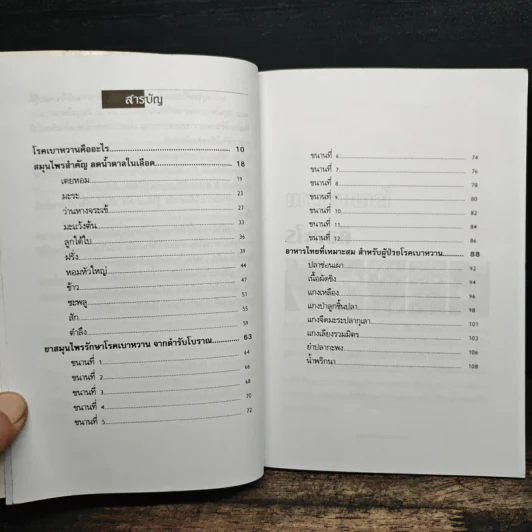 สารบัญ
โรคเบาหวานคืออะไร 10
สมุนไพรสำคัญ ลดน้ำตาลในเลือด 18
เตยหอม 19
มะระ 23
ว่านหางจระเข้ 27
มะแว้งต้น 33
ลูกใต้ใบ 35
ฝรั่ง 39
หอมหัวใหญ่ 44
ช้าว 47
ชะพลู 51
สัก 55
ตำลึง 59
ยาสมุนไพรรักษาโรคเบาหวาน จากตำรับโบราณ 63
ขนานที่ 1 64
ขนานที่ 2 66
ขนานที่ 3 68
ขนานที่ 4 70
ขนานที่ 5 72
ขนานที่ 6 74
ขนานที่ 7 76
ขนานที่ 8 78
ขนานที่ 9 80
ขนานที่ 10 82
ขนานที่ 11 84
ขนานที่ 12 86
อาหารไทยที่เหมาะสม สำหรับผู้ป่วยโรคเบาหวาน 88
ปลาช่อนเผา 92
เนื้อผัดขิง 94
แกงเหลือง 96
แกงป่าลูกชิ้นปลา 98
แกงจืดมะระปลากุเลา 101
แกงเลียงรวมมิตร 103
ยำปลากะพง 106
น้ำพริกนา 108